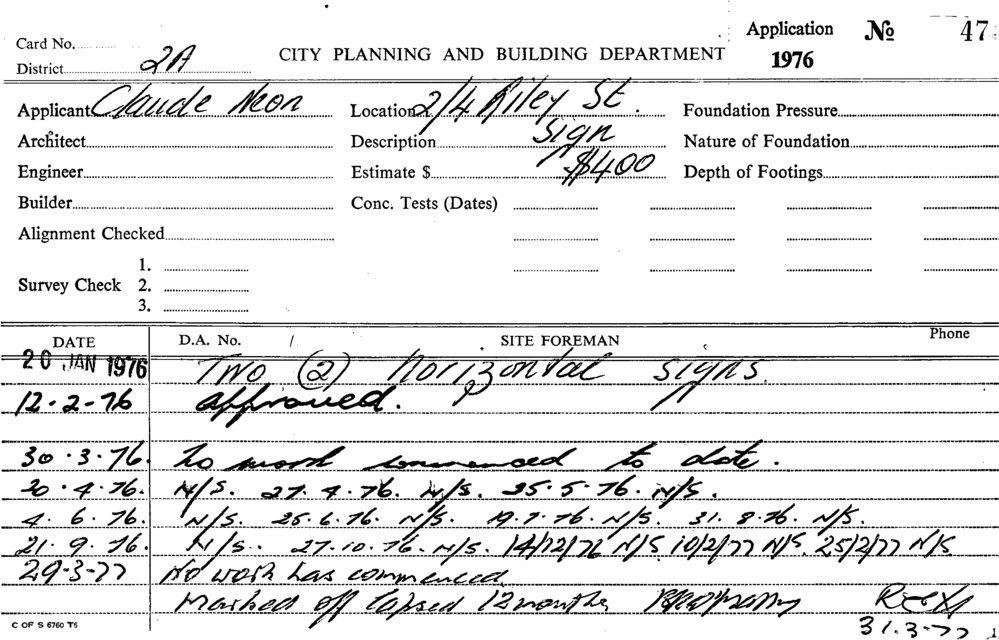 Card No.
District 2A
CITY PLANNING AND BUILDING DEPARTMENT
Application No 47
1976
Applicant Claude Neon Location 2/4 Riley St. Foundation Pressure
Architect Description Sign Nature of Foundation
Engineer Estimate $ $400 Depth of Footings
Builder Conc. Tests (Dates)
Alignment Checked
1.
Survey Check 2.
3.
DATE D.A. No. / SITE FOREMAN Phone
20 JAN 1976 Two (2) horizontal signs.
12-2-76 approved.
30.3.76. No work commenced to date.
20.4.76. N/S. 27.4.76. N/S. 25.5.76. N/S.
4.6.76. N/S. 25.6.76. N/S. 19.7.76. N/S. 31.8.76. N/S.
21.9.76. N/S. 27.10.76. N/S. 14/12/76 N/S 10/2/77 N/S. 25/2/77 N/S
29-3-77 No work has commenced
Marked off lapsed 12 months
31.3.77
C OF S 6760 T6